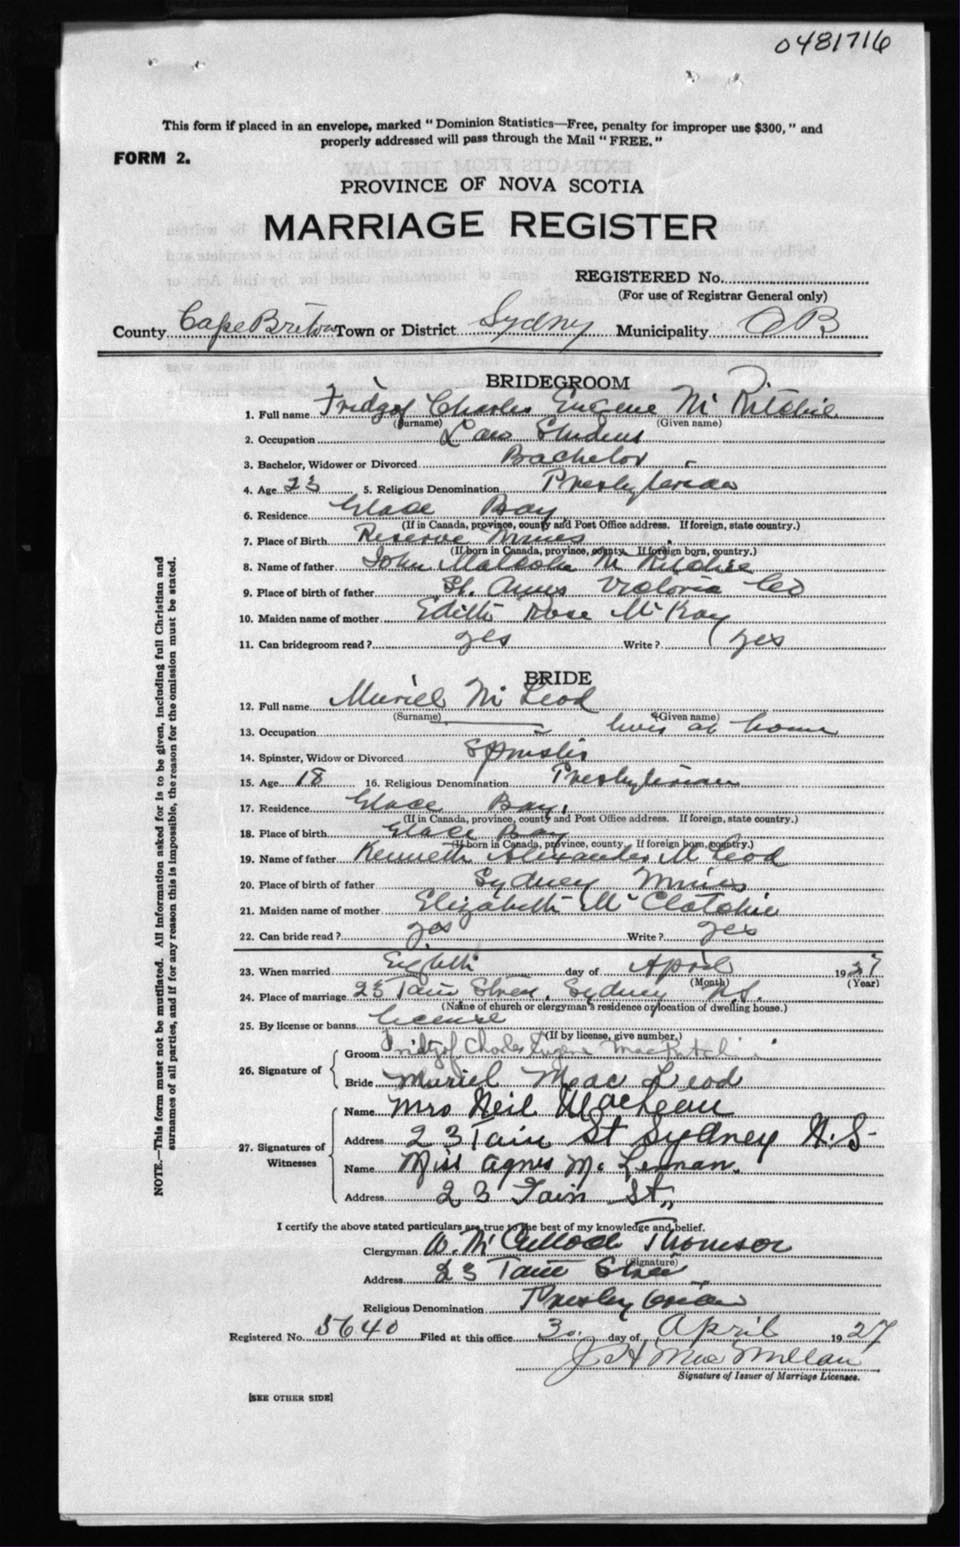 0481716
This form if placed in an envelope, marked "Dominion Statistics—Free, penalty for improper use $300," and
properly addressed will pass through the Mail "FREE."
FORM 2.
PROVINCE OF NOVA SCOTIA
MARRIAGE REGISTER
REGISTERED No.
(For use of Registrar General only)
County Cape Breton Town or District Sydney Municipality CB
BRIDEGROOM
1. Full name Fridgof Charles Eugene Mc Ritchie
(Surname) (Given name)
2. Occupation Law Student
3. Bachelor, Widower or Divorced Bachelor
4. Age 23 5. Religious Denomination Presbyterian
6. Residence Glace Bay
(If in Canada, province, county and Post Office address. If foreign, state country.)
7. Place of Birth Reserve Mines
(If born in Canada, province, county. If foreign born, country.)
8. Name of father John Malcolm Mc Ritchie
9. Place of birth of father St. Anns Victoria Co
10. Maiden name of mother Edith Rose McKay
11. Can bridegroom read? yes Write? yes
BRIDE
12. Full name Muriel Mc Leod
(Surname) (Given name)
13. Occupation lives at home
14. Spinster, Widow or Divorced Spinster
15. Age 18 16. Religious Denomination Presbyterian
17. Residence Glace Bay.
(If in Canada, province, county and Post Office address. If foreign, state country.)
18. Place of birth Glace Bay
(If born in Canada, province, county. If foreign born, country.)
19. Name of father Kenneth Alexander McLeod
20. Place of birth of father Sydney Mines
21. Maiden name of mother Elizabeth McClatchie
22. Can bride read? yes Write? yes
23. When married Eighth day of April 1927
(Month) (Year)
24. Place of marriage 23 Tain Street, Sydney N.S.
(Name of church or clergyman's residence or location of dwelling house.)
25. By license or banns license
(If by license, give number.)
26. Signature of
Groom Fridtjof Charles Eugene MacRitchie
Bride Muriel MacLeod
27. Signatures of Witnesses
Name Mrs Neil MacLean
Address 23 Tain St Sydney N.S-
Name Miss Agnes McLennan.
Address 23 Tain St.,
I certify the above stated particulars are true to the best of my knowledge and belief.
Clergyman W. McCulloch Thomson
(Signature)
Address 23 Tain Street
Religious Denomination Presbyterian
Registered No. 5640 Filed at this office 30. day of April 1927
J H MacMillan
Signature of Issuer of Marriage Licenses.
[SEE OTHER SIDE]
NOTE.—This form must not be mutilated. All information asked for is to be given, including full Christian and
surnames of all parties, and if for any reason this is impossible, the reason for the omission must be stated.